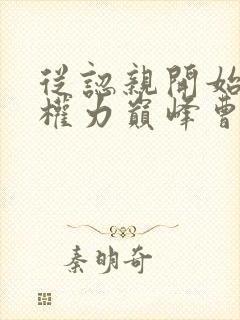 從認親開始
權力巔峰曹
秦明奇